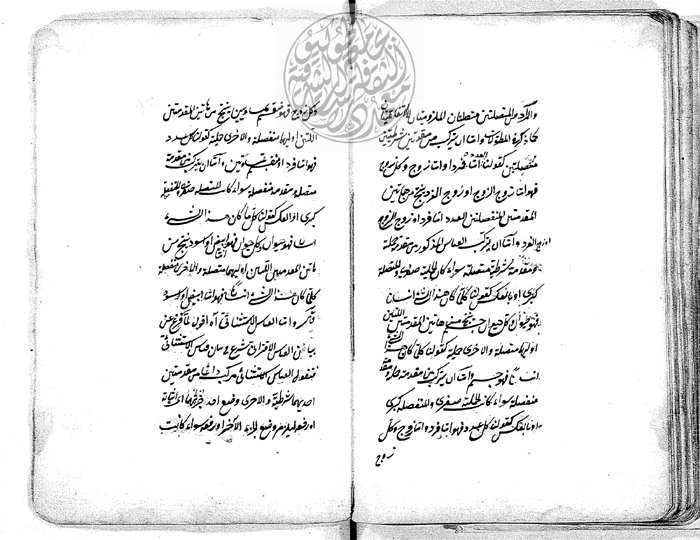 والآ لزم المتصلتين منفصلتان
كما ذكره المطولات واما ان يتركب من مقدمتين شرطيتين
منفصلتين كقولنا العدد اما فرد او اما زوج وكل زوج
فهو اما زوج الزوج او زوج الفرد ينتج من هاتين
المقدمتين المنفصلتين العدد اما فرد او زوج الزوج
او زوج الفرد واما ان يتركب القياس المذكور من مقدمة حملية
ومقدمة شرطية متصلة سواء كان الحملية صغرى والمتصلة
كبرى او بالعكس كقولنا كلما كان هذا الشئ انسانا
فهو حيوان وكل حيوان جسم ينتج من هاتين المقدمتين اللتين
اوليهما متصلة والاخرى حملية كقولنا كلما كان هذا الشئ
انسانا فهو جسم واما ان يتركب من مقدمة حملية مقدمة
منفصلة سواء كان الحملية صغرى والمنفصلة كبرى
او بالعكس كقولنا كل عدد فهو اما فرد او اما زوج وكل
زوج
وكل زوج فهو منقسم بمتساويين ينتج من هاتين المقدمتين
اللتين اوليهما منفصلة والاخرى حملية كقولنا كل عدد
فهو اما فرد او منقسم بمتساويين واما ان يتركب من مقدمة
متصلة مقدمة منفصلة سواء كانت المتصلة صغرى والمنفصلة
كبرى او بالعكس كقولنا كل ما كان هذا الشئ
انسانا فهو حيوان وكل حيوان فهو ابيض او اسود ينتج من
هاتين المقدمتين اللتين اوليهما متصلة والاخرى منفصلة
كلما كان هذا الشئ انسانا فهو اما ابيض او اسود
واما القياس الاستثنائي آه اقول لما فرغ عن
بيان القياس الاقتراني شرع في بيان قياس الاستثنائي
فنقول القياس الاستثنائي مركب دائما من مقدمتين
احديهما شرطية والاخرى وضع احد جزئيها اى اثباته
او رفعه ليلزم وضع الجزء الآخر او رفعه سواء كانت